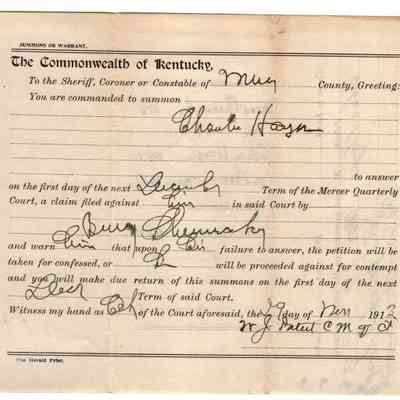 SUMMONS OR WARRANT.
The Commonwealth of Kentucky,
To the Sheriff, Coroner or Constable of Mercer County, Greeting:
You are commanded to summon
Charlie
to answer
on the first day of the next December Term of the Mercer Quarterly
Court, a claim filed against him in said Court by
and warn him that upon his failure to answer, the petition will be
taken for confessed, or he will be proceeded against for contempt
and you will make due return of this summons on the first day of the next
Dec Term of said Court.
Witness my hand as of the Court aforesaid, the 29 day of Nov 1912
The Herald Print.